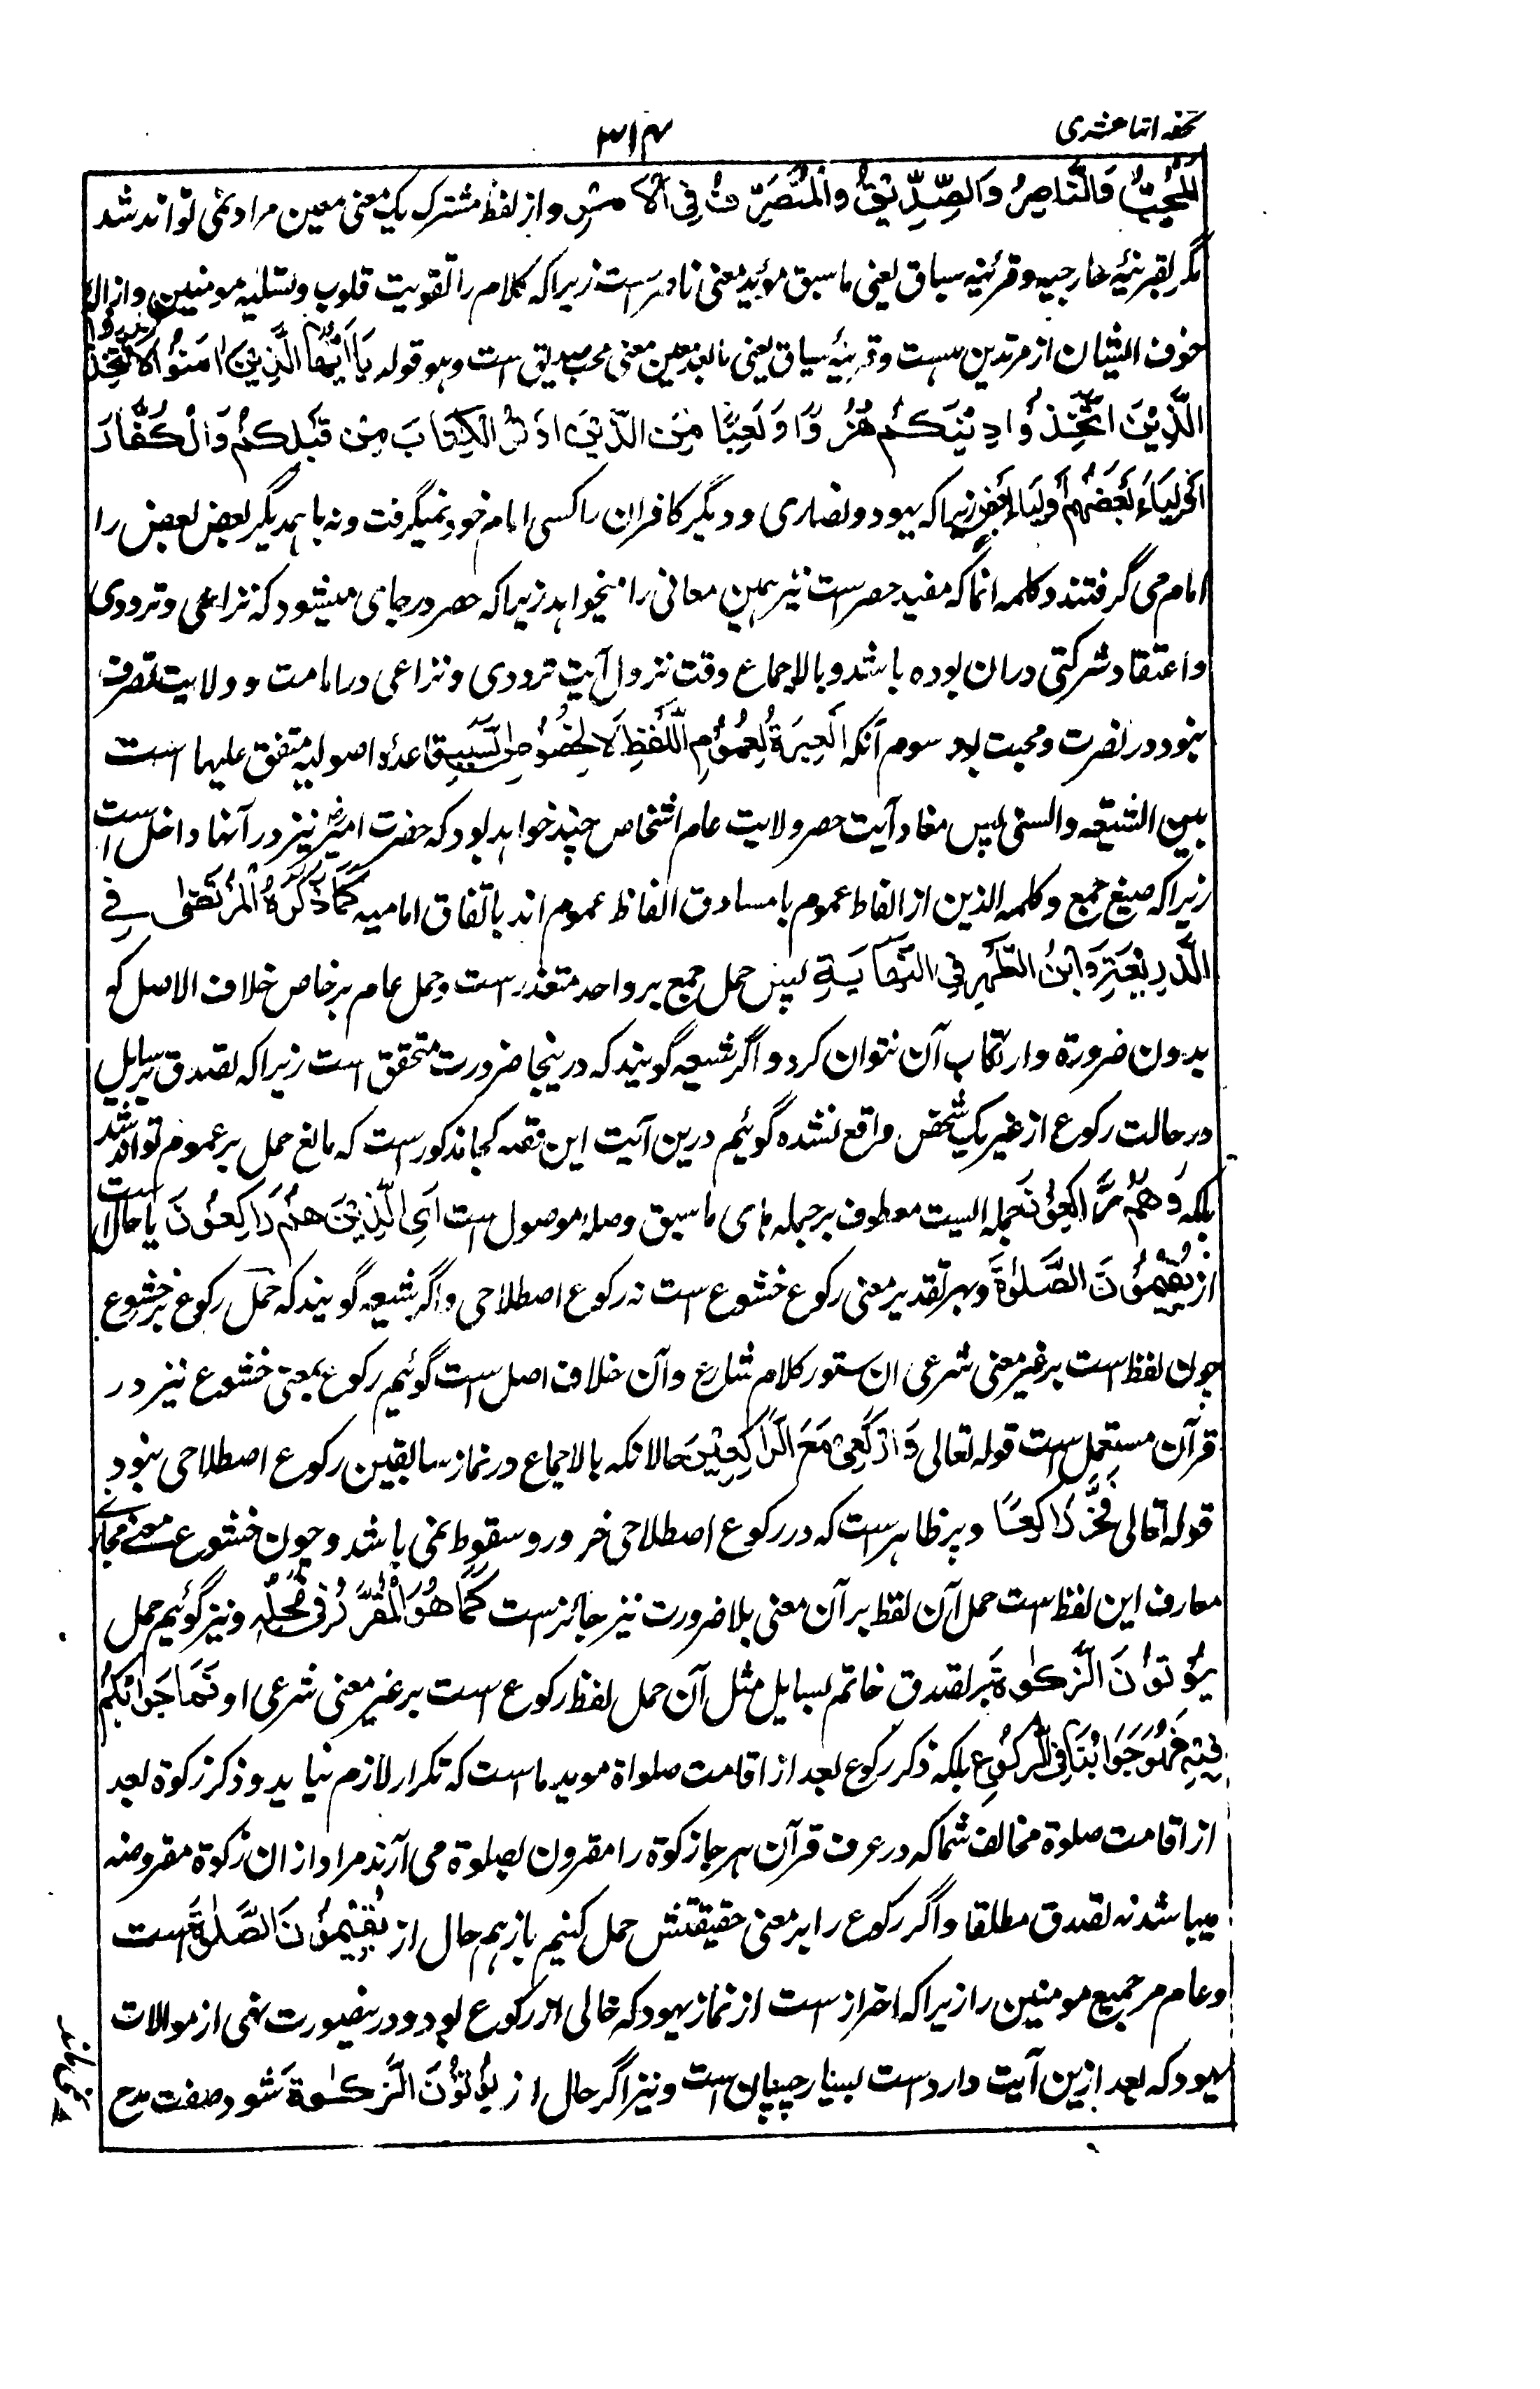 تحفه اثنا عشری
۳۱۴
المُحِبُّ وَالنَّاصِرُ وَالصِّدِّيقُ وَالْمُتَصَرِّفُ فِي الْأَمْرِ و از لفظ مشترک یک معنی معین مراد نمی تواند شد
مگر بقرینهٔ خارجیه و قرینهٔ سباق یعنی ماسبق مؤید معنی ناصر است زیرا که کلام را تقویت قلوب و تسلیه مومنین و ازاله
خوف ایشان از مرتدین ست و قرینهٔ سیاق یعنی مابعد معین معنی محب صدیق است و هو قوله يَا أَيُّهَا الَّذِيْنَ اٰمَنُوْا لَا تَتَّخِذُوا
الَّذِيْنَ اتَّخَذُوْا دِيْنَكُمْ هُزُوًا وَلَعِبًا مِنَ الَّذِيْنَ اُوْتُوا الْكِتَابَ مِنْ قَبْلِكُمْ وَالْكُفَّارَ
اَوْلِيَاءَ بَعْضُهُمْ أَوْلِيَاءُ بَعْضٍ زیرا که یهود و نصاری و دیگر کافران را کسی امام خود نمیگرفت و نه با همدیگر بعض بعض را
امام می گرفتند و کلمه انما که مفید حصر ست نیز همین معانی را میخواهد زیرا که حصر در جای میشود که نزاعی و ترددی
و اعتقاد شرکتی دران بوده باشد و بالاجماع وقت نزول آیت ترددی و نزاعی در امامت و ولایت تصرف
نبود در نصرت و محبت بود سوم آنکه اَلْعِبْرَةُ لِعُمُوْمِ اللَّفْظِ لَا لِخُصُوْصِ السَّبَبِ قاعدهٔ اصولیه متفق علیها است
بین الشیعه والسنی پس مفاد آیت حصر ولایت عام اشخاص چند خواهد بود که حضرت امیر نیز در آنها داخل است
زیرا که صیغ جمع و کلمه الذین از الفاظ عموم یا مساوق الفاظ عموم اند باتفاق امامیه كَمَا ذَكَرَهُ الْمُرْتَضٰى فِي
الذَّرِيْعَةِ وَابْنُ الْمُطَهِّرِ فِي النِّهَايَةِ پس حمل جمع بر واحد متعذر ست و حمل عام بر خاص خلاف الاصل که
بدون ضرورة و ارتکاب آن نتوان کرد و اگر شیعه گویند که درینجا ضرورت متحقق است زیرا که تصدق بر سایل
در حالت رکوع از غیر یک شخص واقع نشده گوئیم درین آیت این قصه کجا مذکورست که مانع حمل بر عموم تواند شد
بلکه وَهُمْ رَاكِعُوْنَ جمله ایست معطوف بر جمله های ماسبق و صلهٔ موصول است اَيِ الَّذِيْنَ هُمْ رَاكِعُوْنَ یا حال است
از يُقِيْمُوْنَ الصَّلٰوةَ و بهر تقدیر معنی رکوع خشوع است نه رکوع اصطلاحی و اگر شیعه گویند که حمل رکوع بر خشوع
چون لفظ است بر غیر معنی شرعی ان ستور کلام شارع و آن خلاف اصل ست گوئیم رکوع بمعنی خشوع نیز در
قرآن مستعمل ست قوله تعالی وَارْكَعِيْ مَعَ الرَّاكِعِيْنَ حالانکه بالاجماع در نماز سابقین رکوع اصطلاحی نبود
قوله تعالی فَخَرَّ رَاكِعًا و پر ظاهر ست که در رکوع اصطلاحی خرور و سقوط نمی باشد و چون خشوع معنی مجازی
متعارف این لفظ ست حمل آن لفظ بر آن معنی بلا ضرورت نیز جائز ست كَمَا هُوَ الْمُقَرَّرُ فِيْ مَحَلِّهٖ و نیز گوئیم حمل
يُؤْتُوْنَ الزَّكٰوةَ بر تصدق خاتم بسایل مثل آن حمل لفظ رکوع است بر غیر معنی شرعی او فَمَا جَوَابُكُمْ
فِيْهِ فَهُوَ جَوَابُنَا فِي الرُّكُوْعِ بلکه ذکر رکوع بعد از اقامت صلواة موید ماست که تکرار لازم نیاید و ذکر زکوة بعد
از اقامت صلوة مخالف شما که در عرف قرآن هر جا زکوة را مقرون بصلوة می آرند مراد از ان زکوة مفروضه
میباشد نه تصدق مطلقا و اگر رکوع را بر معنی حقیقتش حمل کنیم بازهم حال از يُقِيْمُوْنَ الصَّلٰوةَ است
و عام مر جمیع مومنین را زیرا که احتراز ست از نماز یهود که خالی از رکوع بود و درینصورت نهی از موالات
یهود که بعد ازین آیت وارد ست بسیار چسپان است و نیز اگر حال از يُؤْتُوْنَ الزَّكٰوةَ شود صفت مدح
نمی ماند